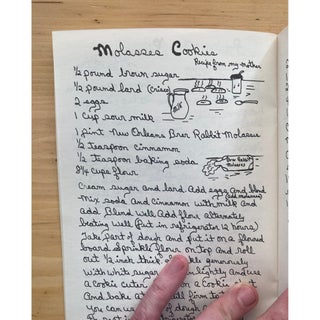 Molasses Cookies
Recipe from my mother
½ pound brown sugar
½ pound lard (Crisco)
2 eggs
1 cup sour milk
milk
1 pint New Orleans Brer Rabbit Molasses
½ teaspoon cinnamon
½ teaspoon baking soda
Brer Rabbit Molasses
8¼ cups flour
Cream sugar and lard. Add eggs and blend
Mix soda and cinnamon with milk and
add. Blend well. Add flour alternately
beating well. (Put in refrigerator 12 hours)
Take part of dough and put it on a floured
board. Sprinkle flour on top and roll
out ½ inch thick. Sprinkle generously
with white sugar lightly and use
a cookie cutter
And bake at till firm
You can us of dough at